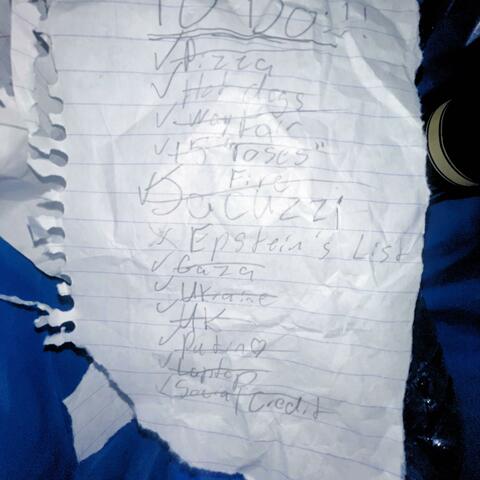 TO DO!!
✓ Pizza
✓ Hot dogs
✓ Wayfair
✓ 15 "Toses"
Fire
✓ Jacuzzi
x Epstein's List
✓ Gaza
✓ Ukraine
✓ UK
✓ Putin♡
✓ Laptop
✓ Social Credit